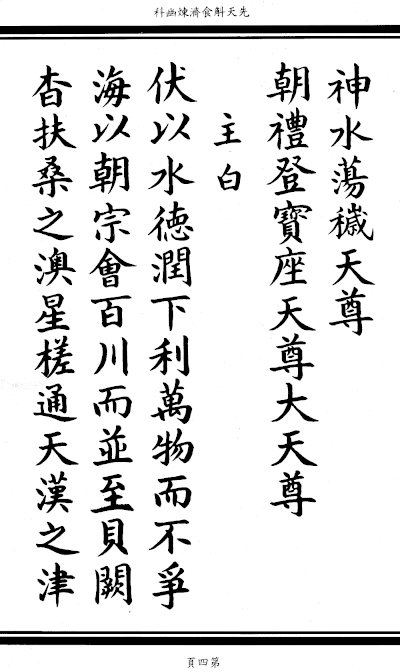 先天斛食濟煉幽科
神水蕩穢天尊
朝禮登寶座天尊大天尊
主白
伏以水德潤下利萬物而不爭
海以朝宗會百川而並至貝闕
杳扶桑之澳星槎通天漢之津
第四頁